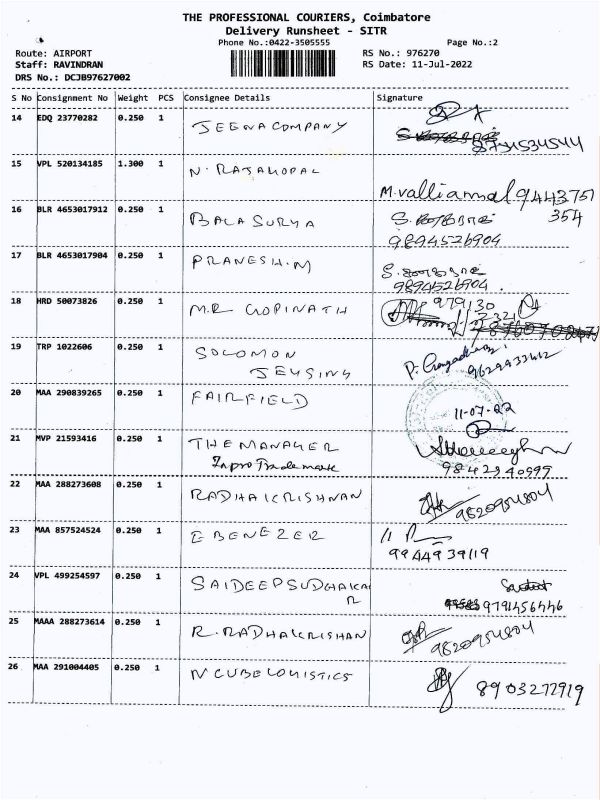 THE PROFESSIONAL COURIERS, Coimbatore
Delivery Runsheet - SITR
Phone No.:0422-3505555 Page No.:2
Route: AIRPORT RS No.: 976270
Staff: RAVINDRAN RS Date: 11-Jul-2022
DRS No.: DCJB97627002
S No Consignment No Weight PCS Consignee Details Signature
14 EDQ 23770282 0.250 1 JEENA COMPANY 8754534544
15 VPL 520134185 1.300 1 N. RAJAGOPAL
M.valliammal 9443751
354
16 BLR 4653017912 0.250 1 BALA SURYA
9894526904
17 BLR 4653017904 0.250 1 PRANESH.M
9894526904
18 HRD 50073826 0.250 1 MR GOPINATH 979130
2321
19 TRP 1022606 0.250 1 SOLOMON
JEYSING 9629433412
20 MAA 290839265 0.250 1 FAIRFIELD
11-07-22
21 MVP 21593416 0.250 1 THE MANAGER
Inpro Trademark 9842340999
22 MAA 288273608 0.250 1 RADHAKRISHNAN 9820954804
23 MAA 857524524 0.250 1 EBENEZER
9944939119
24 VPL 499254597 0.250 1 SAIDEEP SUDHAKA
R 9791456446
25 MAAA 288273614 0.250 1 R. RADHAKRISHAN 9820954804
26 MAA 291004405 0.250 1 N CUBE LOGISTICS 8903277919